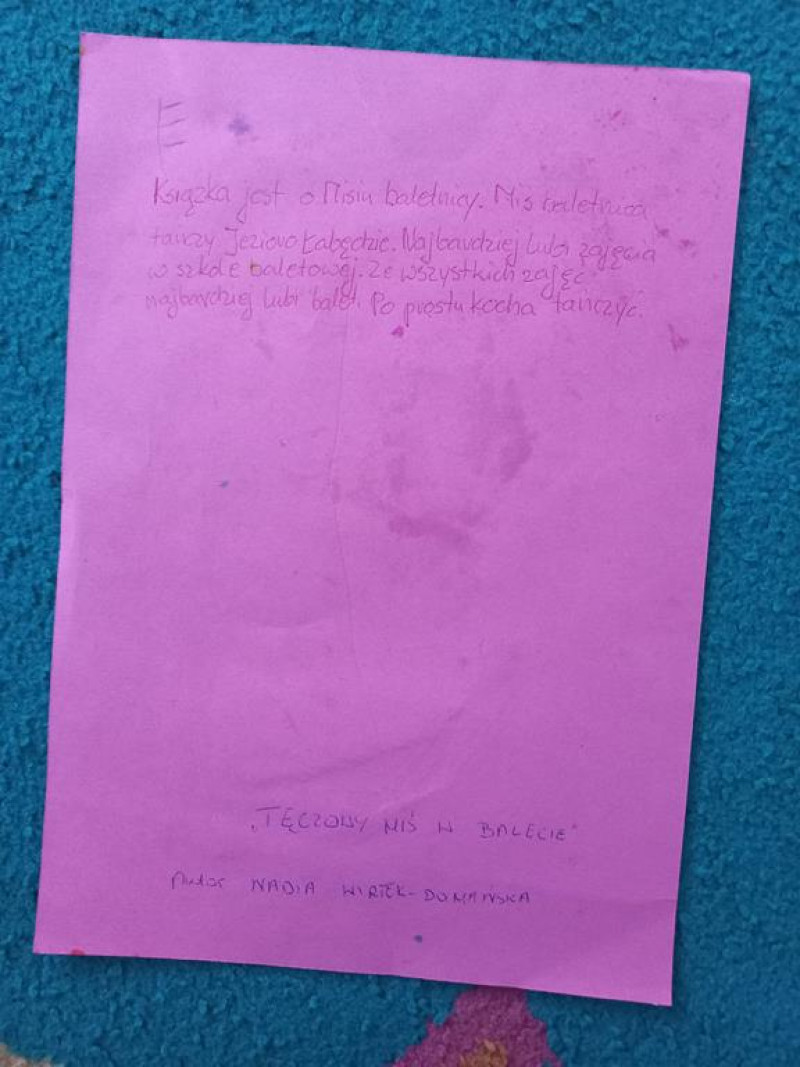 Książka jest o Misiu baletnicy. Miś baletnica
tańczy Jezioro Łabędzie. Najbardziej lubi zajęcia
w szkole baletowej. Ze wszystkich zajęć
najbardziej lubi balet. Po prostu kocha tańczyć.
„TĘCZOWY MIŚ W BALECIE"
Autor NADIA WIRTEK-DOMAŃSKA